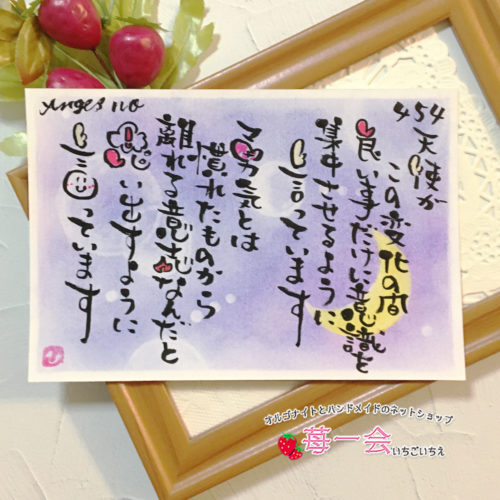 Angel no
454
天使が
この変化の間
良い事だけに意識を
集中させるように
言っています
勇気とは
慣れたものから
離れる意志なんだと
思い出すように
言っています
オルゴナイトとハンドメイドのネットショップ
苺一会いちごいちえ